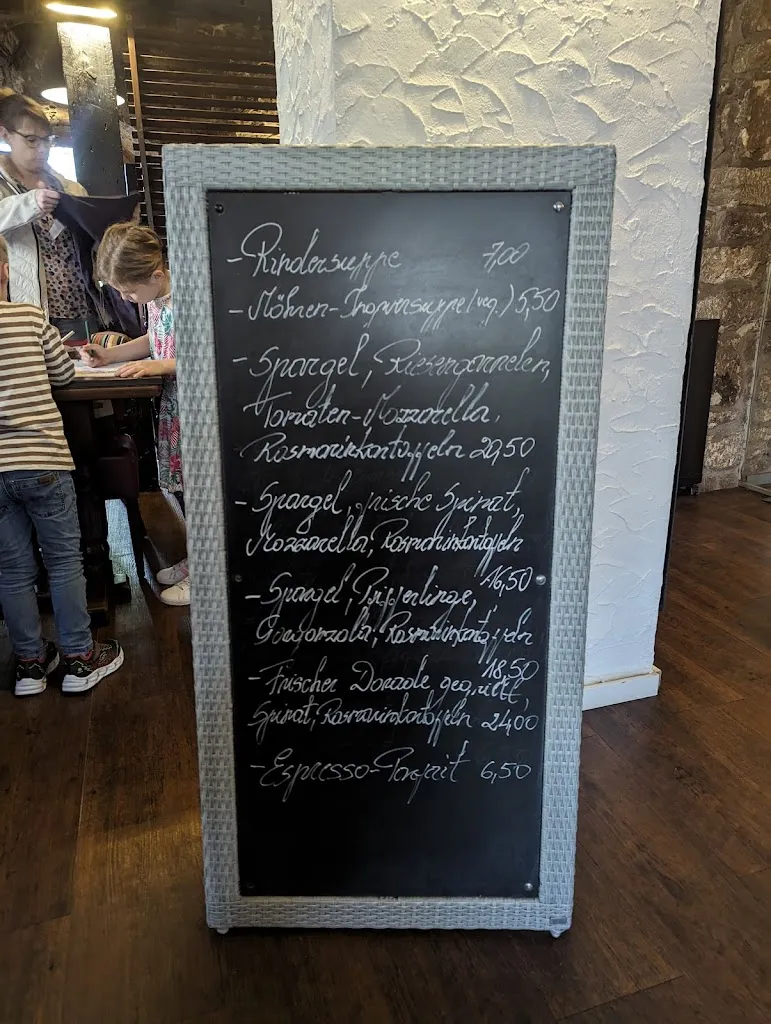 - Rindersuppe 7,00
- Möhren-Ingwersuppe (veg.) 5,50
- Spargel, Riesengarnelen,
Tomaten-Mozzarella,
Rosmarinkartoffeln 20,50
- Spargel, frische Spinat,
Mozzarella, Rosmarinkartoffeln
16,50
- Spargel, Pfifferlinge,
Gorgonzola, Rosmarinkartoffeln
18,50
- Frischer Dorade, gegrillt,
Spinat, Rosmarinkartoffeln 24,00
- Espresso-Parfait 6,50